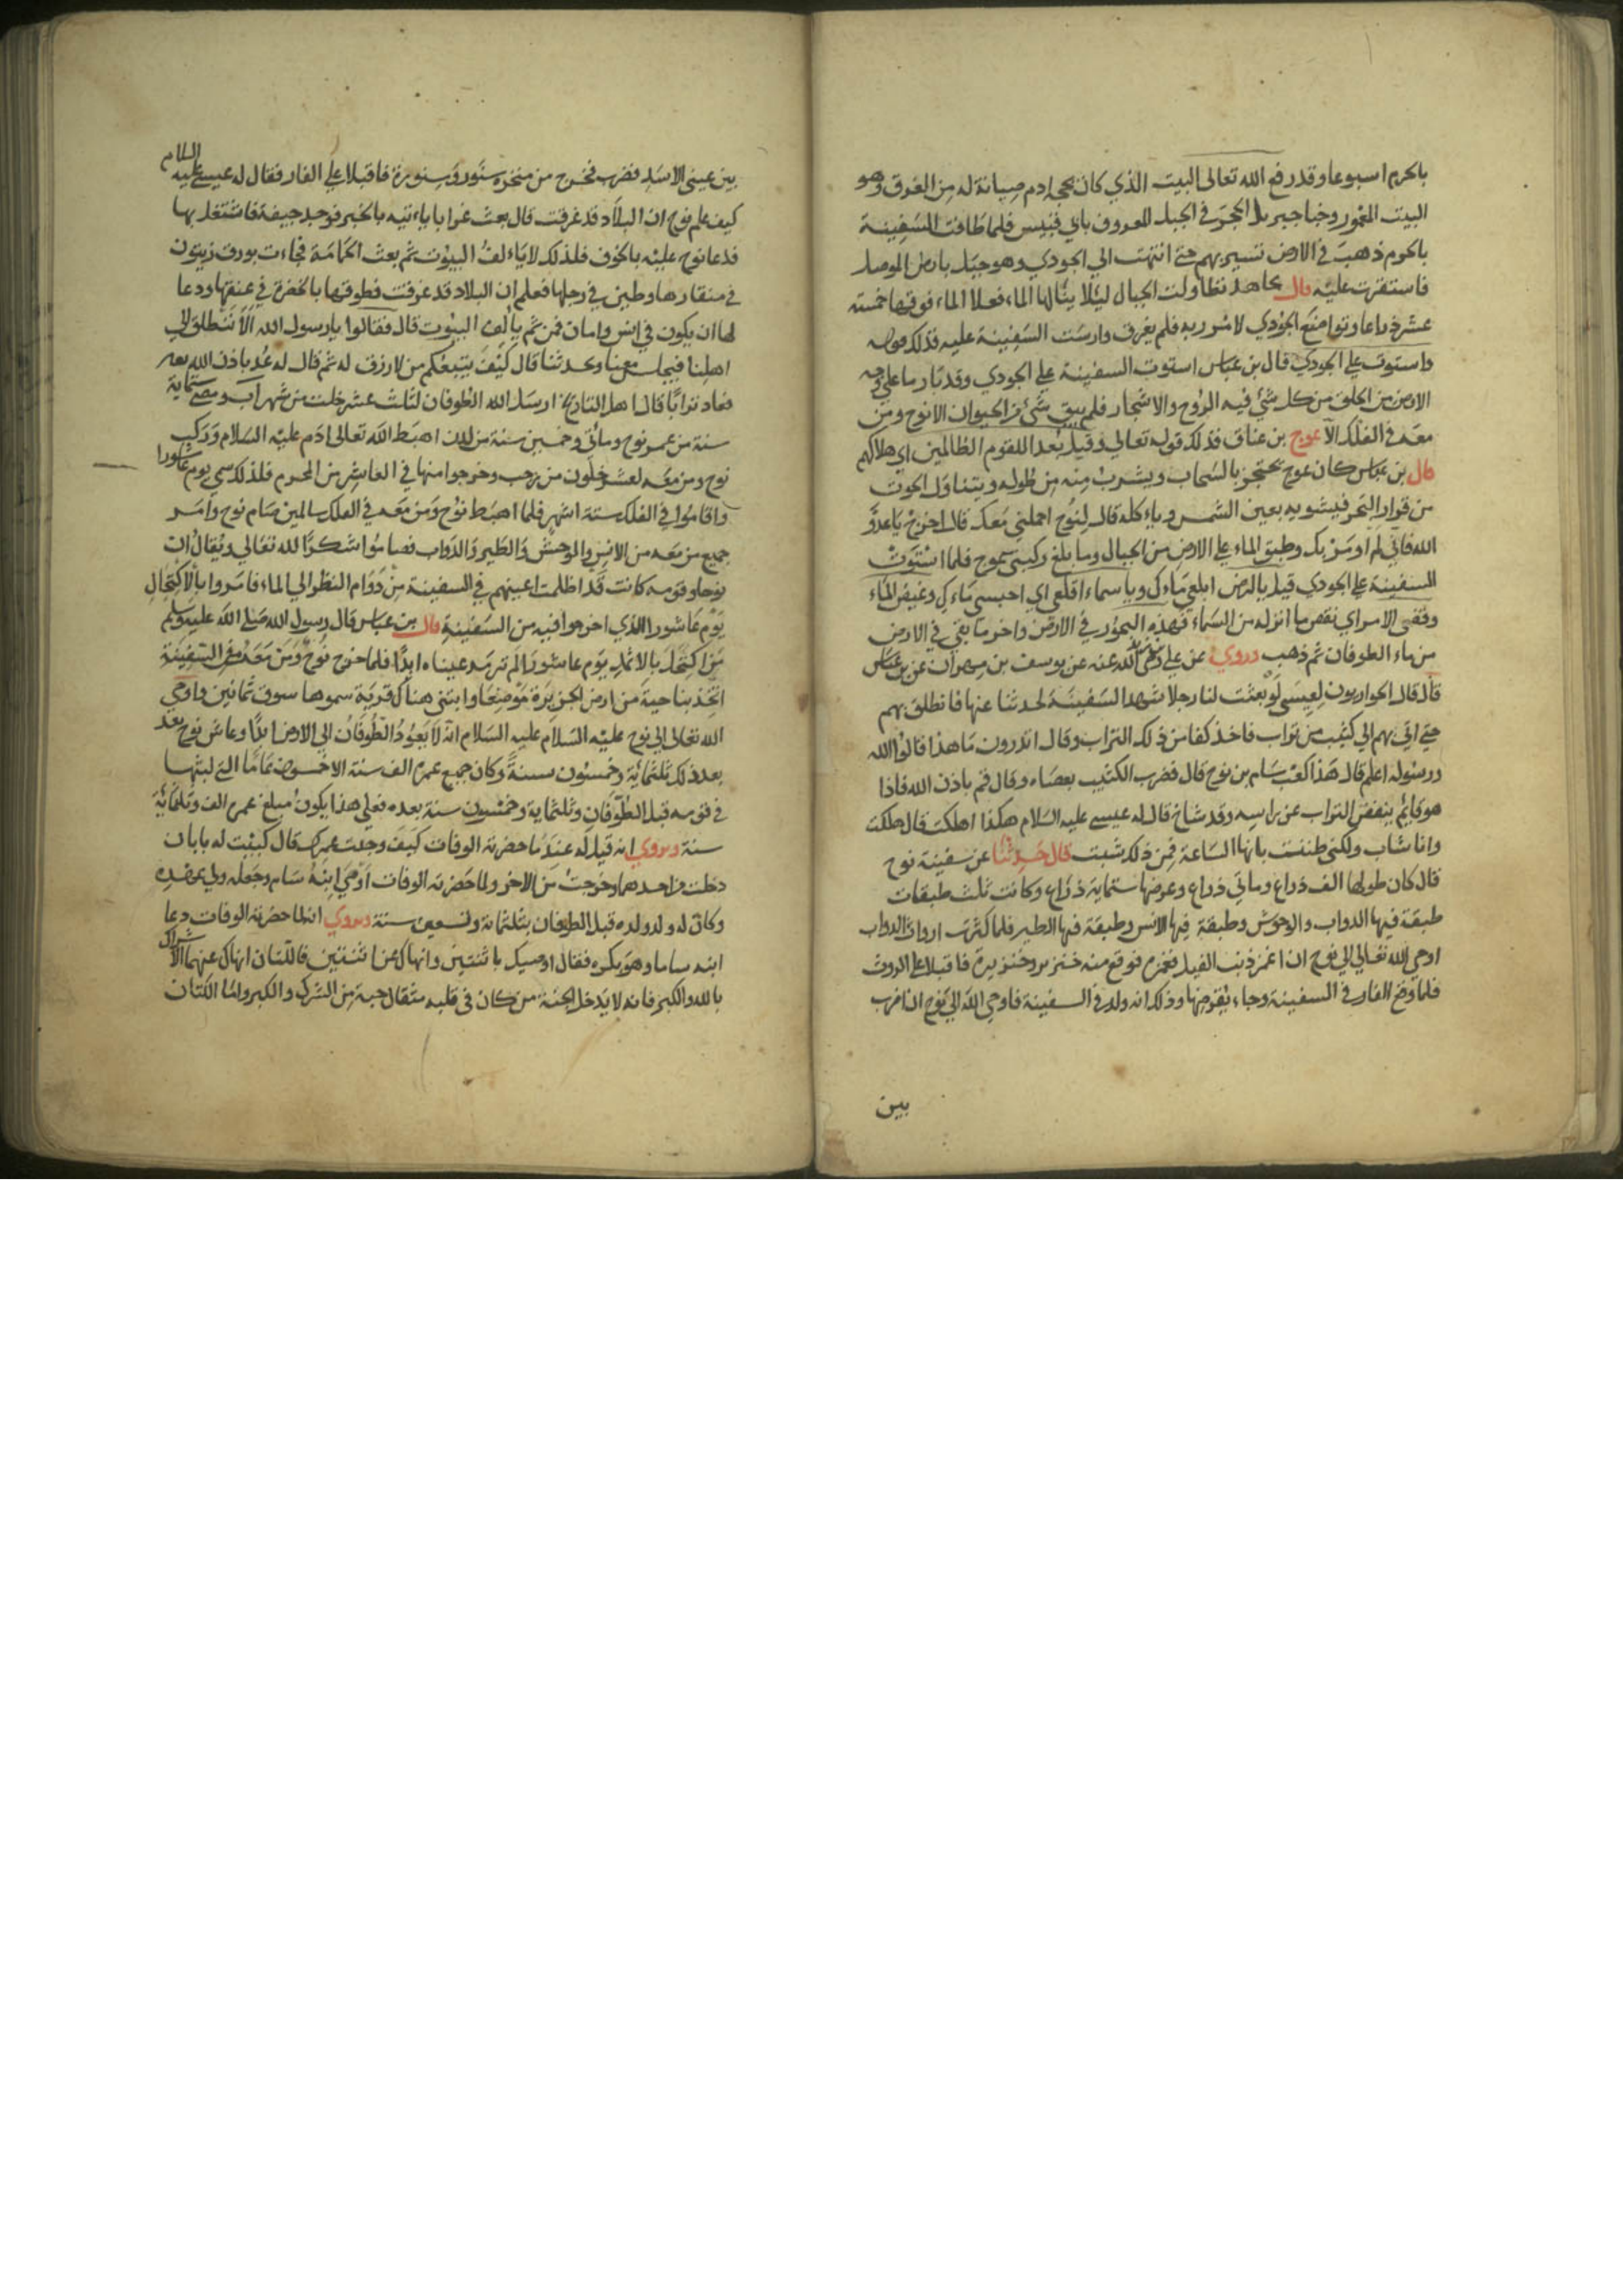 بالحرم اسبوعا وقد رفع الله تعالى البيت الذي كان يحجه ادم صيانة له من الغرق وهو
البيت المعمور وخبا جبريل الحجر في الجبل المعروف بابي قبيس فلما طافت السفينة
بالحرم ذهبت في الارض تسير بهم حتى انتهت الي الجودي وهو جبل بارض الموصل
فاستقرت عليه قال مجاهد تطاولت الجبال ليلا ينالها الماء فعلا الماء فوقها خمسة
عشر ذراعا وتواضع الجودي لامر ربه فلم يغرق وارست السفينة عليه فذلك قوله
واستوت علي الجودي قال بن عباس استوت السفينة علي الجودي وقد باد ما علي وجه
الارض من الخلق من كل شيء فيه الروح والاشجار فلم يبق شيء من الحيوان الا نوح ومن
معه في الفلك الا عوج بن عناق فذلك قوله تعالي وقيل بعدا للقوم الظالمين اي هلاكهم
قال بن عباس كان عوج يحتجز بالسحاب ويشرب منه من طوله ويتناول الحوت
من قرار البحر فيشويه بعين الشمس وياءكله قال لنوح احملني معك قال اخرج يا عدو
الله فاني لم اومر بك وطبق الماء علي الارض من الجبال وما بلغ ركبتي عوج فلما استوت
السفينة علي الجودي قيل يا ارض ابلعي ماءك ويا سماء اقلعي اي احبسي ماءك وغيض الماء
وقضي الامر اي نقص ما انزله من السماء فهذه البحور في الارض واخر ما بقي في الارض
من ماء الطوفان ثم ذهب وروي عن علي رضي الله عنه عن يوسف بن مهران عن بن عباس
قال قال الحواريون لعيسى لو بعثت لنا رجلا شهد السفينة لحدثنا عنها فانطلق بهم
حتى اتي بهم الي كثيب من تراب فاخذ كفا من ذلك التراب وقال اتدرون ما هذا قالوا الله
ورسوله اعلم قال هذا كعب سام بن نوح قال فضرب الكثيب بعصاه وقال قم باذن الله فاذا
هو قايم ينفض التراب عن راسه وقد شاخ قال له عيسى عليه السلام هكذا اهلكت قال هلكت
وانا شاب ولكني ظننت بانها الساعة فمن ذلك شبت قال حدثنا عن سفينة نوح
قال كان طولها الف ذراع ومأتي ذراع وعرضها ستماية ذراع وكانت ثلث طبقات
طبقة فيها الدواب والوحوش وطبقة فيها الانس وطبقة فيها الطير فلما كثرت ارواث الدواب
اوحي الله تعالي الي نوح ان اغمز ذنب الفيل فغمزه فوقع منه خنزير وخنزيرة فاقبلا علي الروث
فلما وقع الفار في السفينة وجاء يقرضها وذلك انه ولد في السفينة فاوحي الله الي نوح ان اضرب
بين
بين عيني الاسد فضرب فخرج من منخره سنور وسنورة فاقبلا علي الفار فقال له عيسى عليه السلام
كيف علم نوح ان البلاد قد غرقت قال بعث غرابا ياءتيه بالخبر فوجد جيفة فاشتغل بها
فدعا نوح عليه بالخوف فلذلك لا ياءلف البيوت ثم بعث الحمامة فجاءت بورق زيتون
في منقارها وطين في رجلها فعلم ان البلاد قد غرقت فطوقها بالخضرة في عنقها ودعا
لها ان يكون في انس وامان فمن ثم يالف البيوت قال فقالوا يا رسول الله الا ننطلق الي
اهلنا فيجلس معنا ويحدثنا قال كيف يتبعكم من لا رزق له ثم قال له عد باذن الله
فعاد ترابا قال اهل التاريخ ارسل الله الطوفان لثلث عشر خلت من شهر آب ومضي ستماية
سنة من عمر نوح ومائتي وخمسين سنة من لدن اهبط الله تعالى ادم عليه السلام وركب
نوح ومن معه لعشر خلون من رجب وخرجوا منها في العاشر من المحرم فلذلك سمي يوم عاشورا
واقاموا في الفلك ستة اشهر فلما اهبط نوح ومن معه في الفلك سالمين صام نوح وامر
جميع من معه من الانس والوحش والطير والدواب فصاموا شكرا لله تعالي ويقال ان
نوحا وقومه كانت قد اظلمت اعينهم في السفينة من دوام النظر الي الماء فامروا بالاكتحال
يوم عاشورا الذي اخرجوا فيه من السفينة قال بن عباس قال رسول الله صلي الله عليه وسلم
من اكتحل بالاثمد يوم عاشورا لم ترمد عيناه ابدا فلما خرج نوح ومن معه من السفينة
اتخذ بناحية من ارض الجزيرة موضعا وابتني هناك قرية سموها سوق ثمانين واوحي
الله تعالى الي نوح عليه السلام عليه السلام انه لا يعود الطوفان الي الارض ابدا وعاش نوح بعد
بعد ذلك ثلثماية وخمسون سنة وكان جميع عمره الف سنة الا خمسون عاما التي لبثها
في قومه قبل الطوفان وثلثماية وخمسون سنة بعده فعلي هذا يكون مبلغ عمره الف وثلثماية
سنة وروي انه قيل له عند ما حضرته الوفات كيف وجدت عمرك قال كبيت له بابان
دخلت من احدهما وخرجت من الاخر ولما حضرته الوفات اوصي ابنه سام وجعله ولي عهده
وكان له ولد ولده قبل الطوفان بثلثماية وتسعين سنة وروي انه لما حضرته الوفات دعا
ابنه ساما وهو بكره فقال اوصيك باثنتين وانهاك عن اثنتين فالتان انهاك عنهما الاشراك
بالله والكبر فانه لا يدخل الجنة من كان في قلبه مثقال حبة من الشرك والكبر واما التان